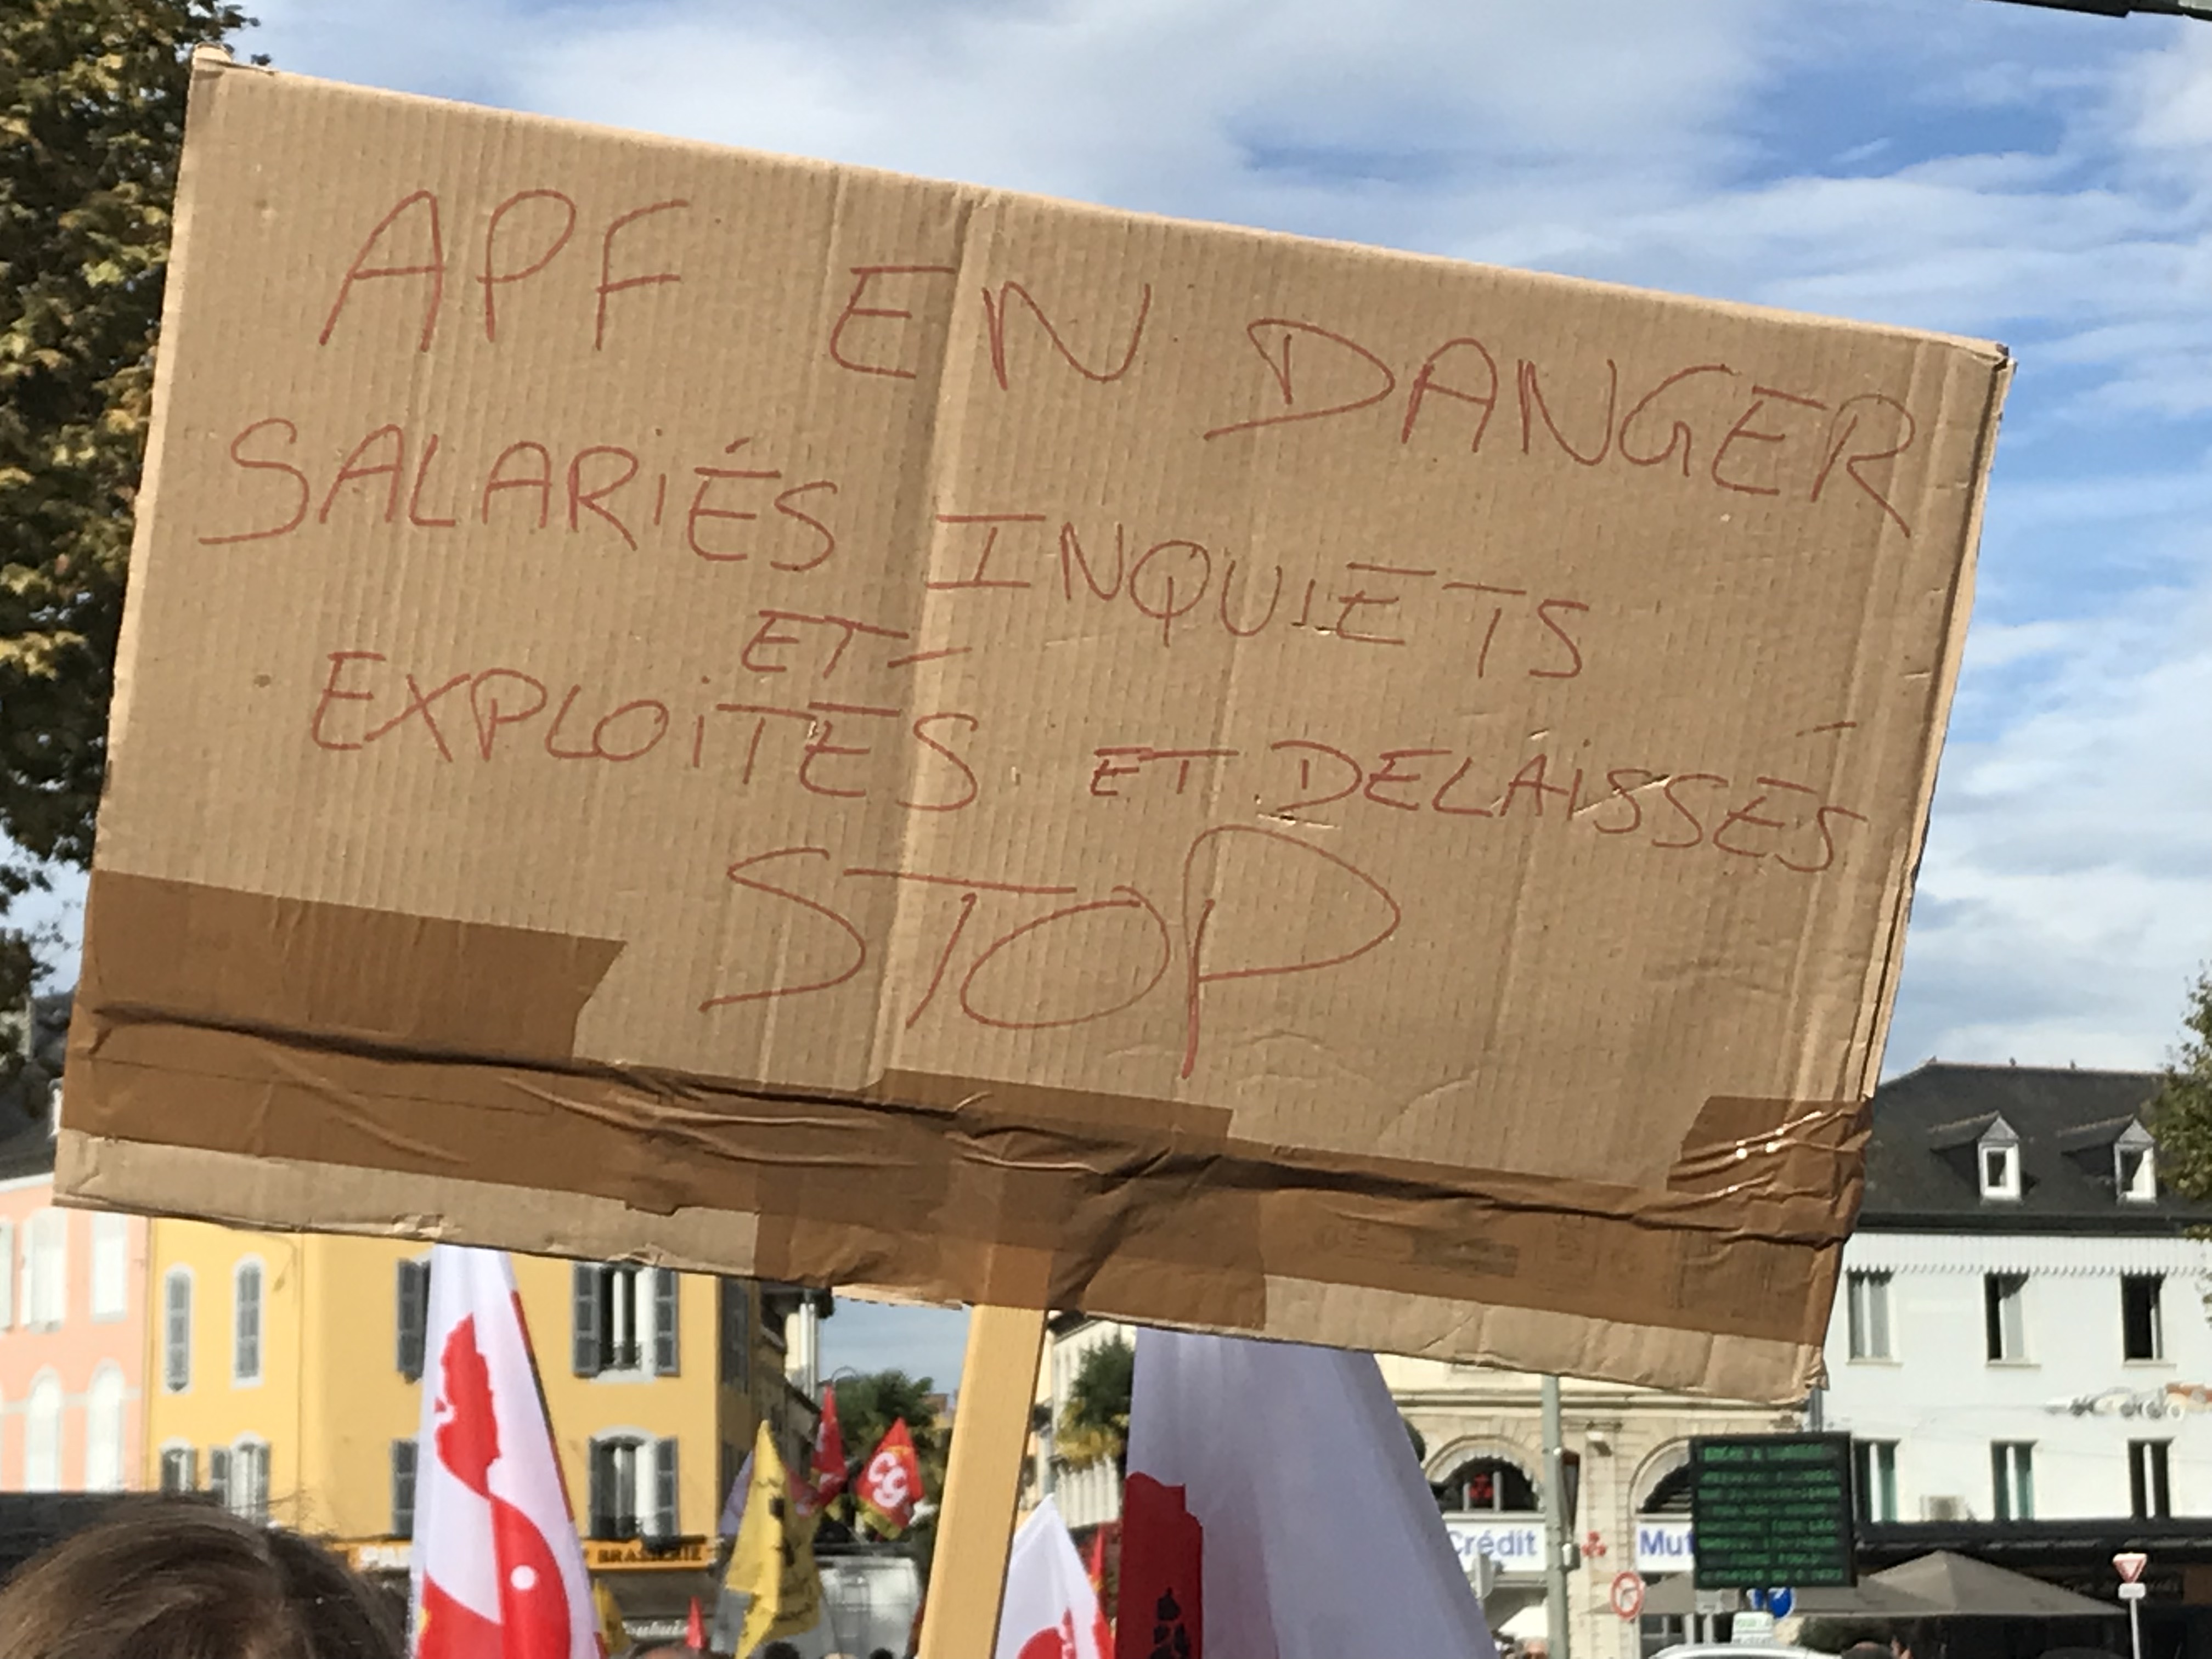 APF EN DANGER
SALARIÉS INQUIETS
ET
EXPLOITÉS ET DELAISSÉS
STOP
cg
BRASSERIE
Crédit
Mut